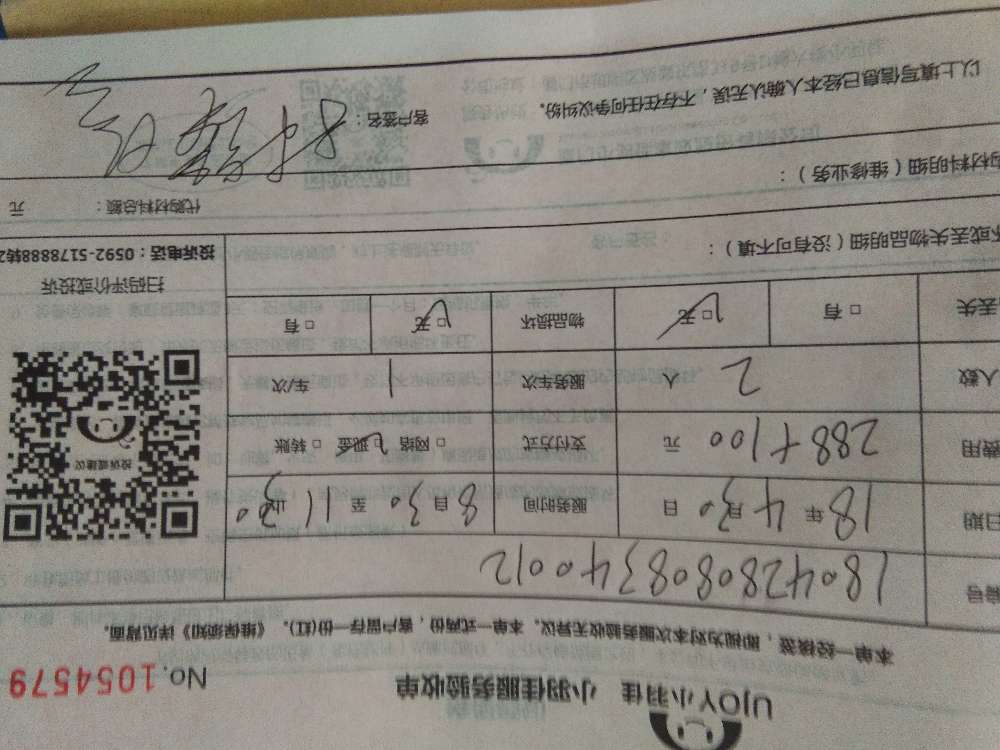 UJOY小羽佳 小羽佳服务验收单
No. 1054579
本单一经核签，即视为对本次服务验收无异议。本单一式两份，客户留存一份(红)。《维保须知》详见背面。
编号 180428080834 0012
日期 18年4月30日 服务时间 8月30至11 30
费用 288+100 元 支付方式 □网络 □现金 □转账
人数 2 人 服务车次 1 车/次
丢失 □有 □无 物品损坏 □无 □有
投诉或建议
扫码评价或投诉
坏或丢失物品明细（没有可不填）：
投诉电话：0592-5178888转2
购材料明细（维修业务）：
代购材料总额： 元
以上填写信息已经本人确认无误，不存在任何争议纠纷。
客户签名：